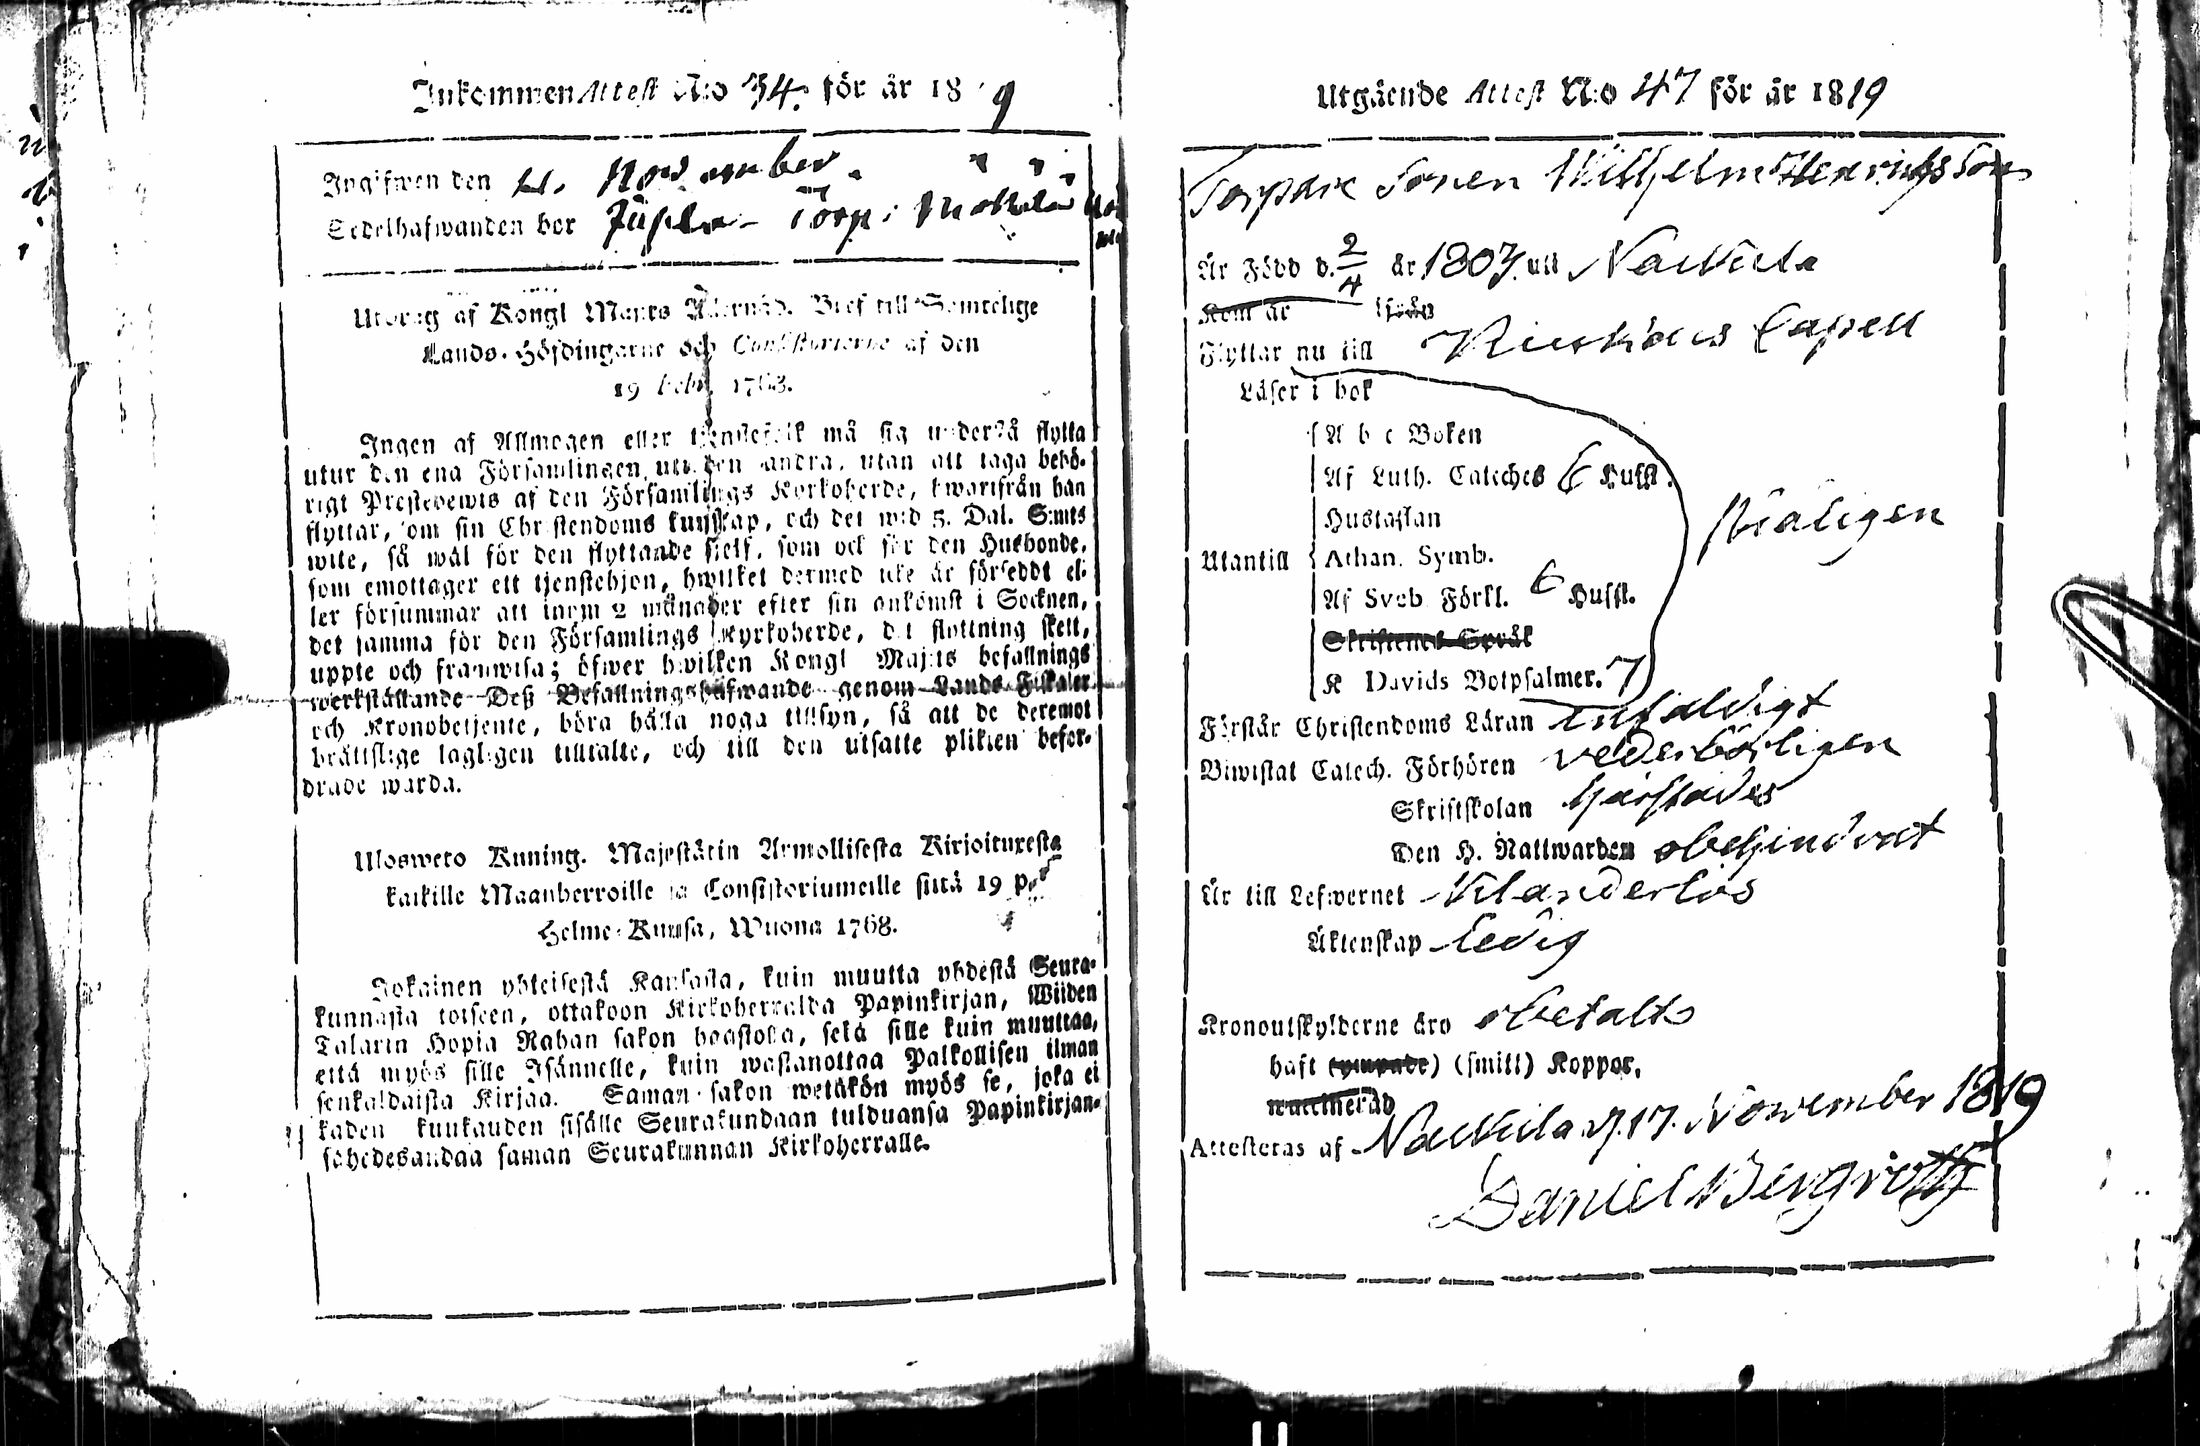 Inkommen Attest N:o 34. för år 18 9
Ingifwen den November.
Sedelhafwanden bor
Utdrag af Kongl Majets Allernåd. Bref till Samtelige
Lands-Höfdingarne och Consistorierne af den
19 Febr. 1768.
Ingen af Allmogen eller tjenstefolk må sig understå flytta
utur den ena Församlingen uti den andra, utan att taga behö-
rigt Prestebewis af den Församlings Kyrkoherde, hwarifrån han
flyttar, om sin Christendoms kunskap, och det wid 5. Dal. S:mts
wite, så wäl för den flyttande sielf, som ock för den Husbonde,
som emottager ett tjenstehjon, hwilket dermed icke är försedt el-
ler försummar att inom 2 månader efter sin ankomst i Socknen,
det samma för den Församlings Kyrkoherde, dit flyttning skett,
uppte och framwisa; öfwer hwilken Kongl Maj:ts befallnings
werkställande Deß Befallningshafwande genom Lands Fiskaler
och Kronobetjente, böra hålla noga tillsyn, så att de deremot
brättslige lagligen tilltalte, och till den utsatte plikten befor-
drade warda.
Ulosweto Kuning. Majestätin Armollisesta Kirjoituxesta
kaikille Maanherroille ja Consistoriumeille siitä 19 p.
Helme-Kuusa, Wuonna 1768.
Jokainen yhteisestä Kansasta, kuin muutta yhdestä Seura-
kunnasta toiseen, ottakoon Kirkoherralda Papinkirjan, Wiiden
Talarin Hopia Rahan sakon haastolla, sekä sille kuin muuttaa,
että myös sille Isännelle, kuin wastanottaa Palkollisen ilman
senkaldaista Kirjaa. Saman sakon wetäkön myös se, joka ei
kaden kuukauden sisälle Seurakundaan tulduansa Papinkirjan-
sa hedesandaa saman Seurakunnan Kirkoherralle.
Utgående Attest N:o 47 för år 1819
Torpare Sonen Wilhelm Henrichsson
Är Född d. 2/4 år 1803. uti Nackila
Kom år ifrån
Flyttar nu till Kiukais Capell
Läser i bok
A b c Boken
Af Luth. Cateches 6 Hufst.
Hustaflan
Utantill Athan. Symb. försvarligen
Af Sveb. Förkl. 6 Hufst.
Skriftenes Språk
K Davids Botpsalmer. 7
Förstår Christendoms Läran enfaldigt
Biwistat Catech. Förhören vederbörligen
Skriftskolan härstädes
Den H. Nattwarden obehindrat
Är till Lefwernet Klanderlös
Äktenskap Ledig
Kronoutskylderne äro obetalte
haft (ympade) (smitt) Koppor,
waccinerad
Attesteras af Nackila d. 17. November 1819
Daniel Bergroth